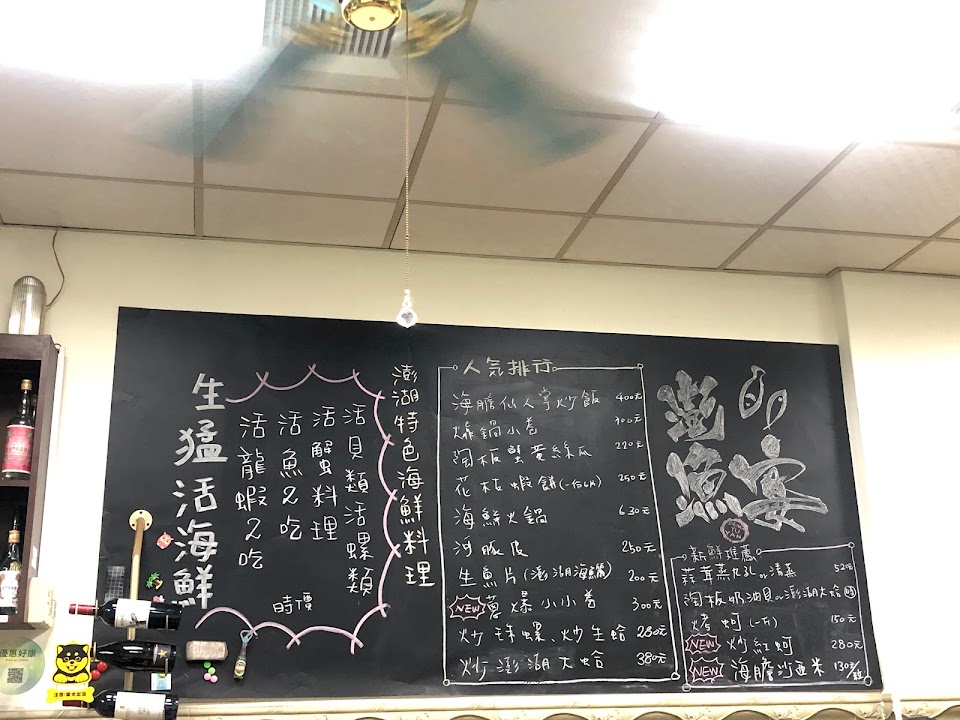 生猛活海鮮
澎湖特色海鮮料理
活貝類活螺類
活蟹料理
活魚2吃
活龍蝦2吃
時價
人気排行
海膽仙人掌炒飯 400元
爆鍋小卷 300元
陶板蟹黃絲瓜 220元
花枝蝦餅(一份6片) 250元
海鮮火鍋 630元
河豚皮 250元
生魚片(澎湖海鱺) 200元
NEW 蔥爆小小卷 300元
炒珠螺、炒生蛤 280元
炒澎湖大蛤 380元
澎湖印
漁宴
新鮮推薦
蒜茸蒸九孔or清蒸 520元
陶板奶油貝or澎湖大蛤
烤蚵(一斤) 150元
NEW 炒紅蚵 280元
NEW 海膽沙西米 130元
優惠好康